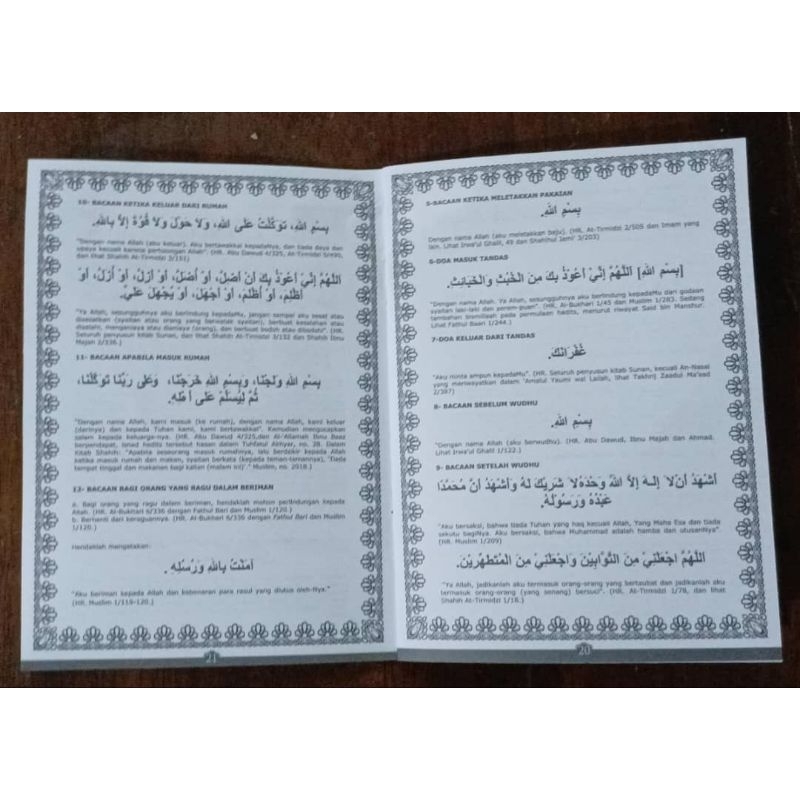 5-BACAAN KETIKA MELETAKKAN PAKAIAN
بِسْمِ اللهِ.
Dengan nama Allah (aku meletakkan baju). (HR. At-Tirmidzi 2/505 dan Imam yang
lain. Lihat Irwa'ul Ghalil, 49 dan Shahihul Jami' 3/203)
6-DOA MASUK TANDAS
[بِسْمِ اللهِ] اَللَّهُمَّ إِنِّيْ أَعُوْذُ بِكَ مِنَ الْخُبُثِ وَالْخَبَائِثِ.
"Dengan nama Allah. Ya Allah, sesungguhnya aku berlindung kepadaMu dari godaan
syaitan laki-laki dan perem-puan". (HR. Al-Bukhari 1/45 dan Muslim 1/283. Sedang
tambahan bismillaah pada permulaan hadits, menurut riwayat Said bin Manshur.
Lihat Fathul Baari 1/244.)
7-DOA KELUAR DARI TANDAS
غُفْرَانَكَ.
"Aku minta ampun kepadaMu". (HR. Seluruh penyusun kitab Sunan, kecuali An-Nasai
yang meriwayatkan dalam 'Amalul Yaumi wal Lailah, lihat Takhrij Zaadul Ma'aad
2/387)
8- BACAAN SEBELUM WUDHU
بِسْمِ اللهِ.
"Dengan nama Allah (aku berwudhu). (HR. Abu Dawud, Ibnu Majah dan Ahmad.
Lihat Irwa'ul Ghalil 1/122.)
9- BACAAN SETELAH WUDHU
أَشْهَدُ أَنْ لاَ إِلَـهَ إِلاَّ اللهُ وَحْدَهُ لاَ شَرِيْكَ لَهُ وَأَشْهَدُ أَنَّ مُحَمَّدًا
عَبْدُهُ وَرَسُوْلُهُ.
"Aku bersaksi, bahwa tiada Tuhan yang haq kecuali Allah, Yang Maha Esa dan tiada
sekutu bagiNya. Aku bersaksi, bahwa Muhammad adalah hamba dan utusanNya".
(HR. Muslim 1/209)
اَللَّهُمَّ اجْعَلْنِيْ مِنَ التَّوَّابِيْنَ وَاجْعَلْنِيْ مِنَ الْمُتَطَهِّرِيْنَ.
"Ya Allah, jadikanlah aku termasuk orang-orang yang bertaubat dan jadikanlah aku
termasuk orang-orang (yang senang) bersuci". (HR. At-Tirmidzi 1/78, dan lihat
Shahih At-Tirmidzi 1/18.)
20
10- BACAAN KETIKA KELUAR DARI RUMAH
بِسْمِ اللهِ، تَوَكَّلْتُ عَلَى اللهِ، وَلاَ حَوْلَ وَلاَ قُوَّةَ إِلاَّ بِاللهِ.
"Dengan nama Allah (aku keluar). Aku bertawakkal kepadaNya, dan tiada daya dan
upaya kecuali karena pertolongan Allah". (HR. Abu Dawud 4/325, At-Tirmidzi 5/490,
dan lihat Shahih At-Tirmidzi 3/151)
اَللَّهُمَّ إِنِّيْ أَعُوْذُ بِكَ أَنْ أَضِلَّ، أَوْ أُضَلَّ، أَوْ أَزِلَّ، أَوْ أُزَلَّ، أَوْ
أَظْلِمَ، أَوْ أُظْلَمَ، أَوْ أَجْهَلَ، أَوْ يُجْهَلَ عَلَيَّ.
"Ya Allah, sesungguhnya aku berlindung kepadaMu, jangan sampai aku sesat atau
disesatkan (syaitan atau orang yang berwatak syaitan), berbuat kesalahan atau
disalahi, menganiaya atau dianiaya (orang), dan berbuat bodoh atau dibodohi". (HR.
Seluruh penyusun kitab Sunan, dan lihat Shahih At-Tirmidzi 3/152 dan Shahih Ibnu
Majah 2/336.)
11- BACAAN APABILA MASUK RUMAH
بِسْمِ اللهِ وَلَجْنَا، وَبِسْمِ اللهِ خَرَجْنَا، وَعَلَى رَبِّنَا تَوَكَّلْنَا،
ثُمَّ لِيُسَلِّمْ عَلَى أَهْلِهِ.
"Dengan nama Allah, kami masuk (ke rumah), dengan nama Allah, kami keluar
(darinya) dan kepada Tuhan kami, kami bertawakkal". Kemudian mengucapkan
salam kepada keluarga-nya. (HR. Abu Dawud 4/325,dan Al-'Allamah Ibnu Baaz
berpendapat, isnad hadits tersebut hasan dalam Tuhfatul Akhyar, no. 28. Dalam
Kitab Shahih: "Apabila seseorang masuk rumahnya, lalu berdzikir kepada Allah
ketika masuk rumah dan makan, syaitan berkata (kepada teman-temannya), 'Tiada
tempat tinggal dan makanan bagi kalian (malam ini)'." Muslim, no. 2018.)
12- BACAAN BAGI ORANG YANG RAGU DALAM BERIMAN
a. Bagi orang yang ragu dalam beriman, hendaklah mohon perlindungan kepada
Allah. (HR. Al-Bukhari 6/336 dengan Fathul Bari dan Muslim 1/120.)
b. Berhenti dari keraguannya. (HR. Al-Bukhari 6/336 dengan Fathul Bari dan Muslim
1/120.)
Hendaklah mengatakan:
آمَنْتُ بِاللهِ وَرُسُلِهِ.
"Aku beriman kepada Allah dan kebenaran para rasul yang diutus oleh-Nya".
(HR. Muslim 1/119-120.)
21